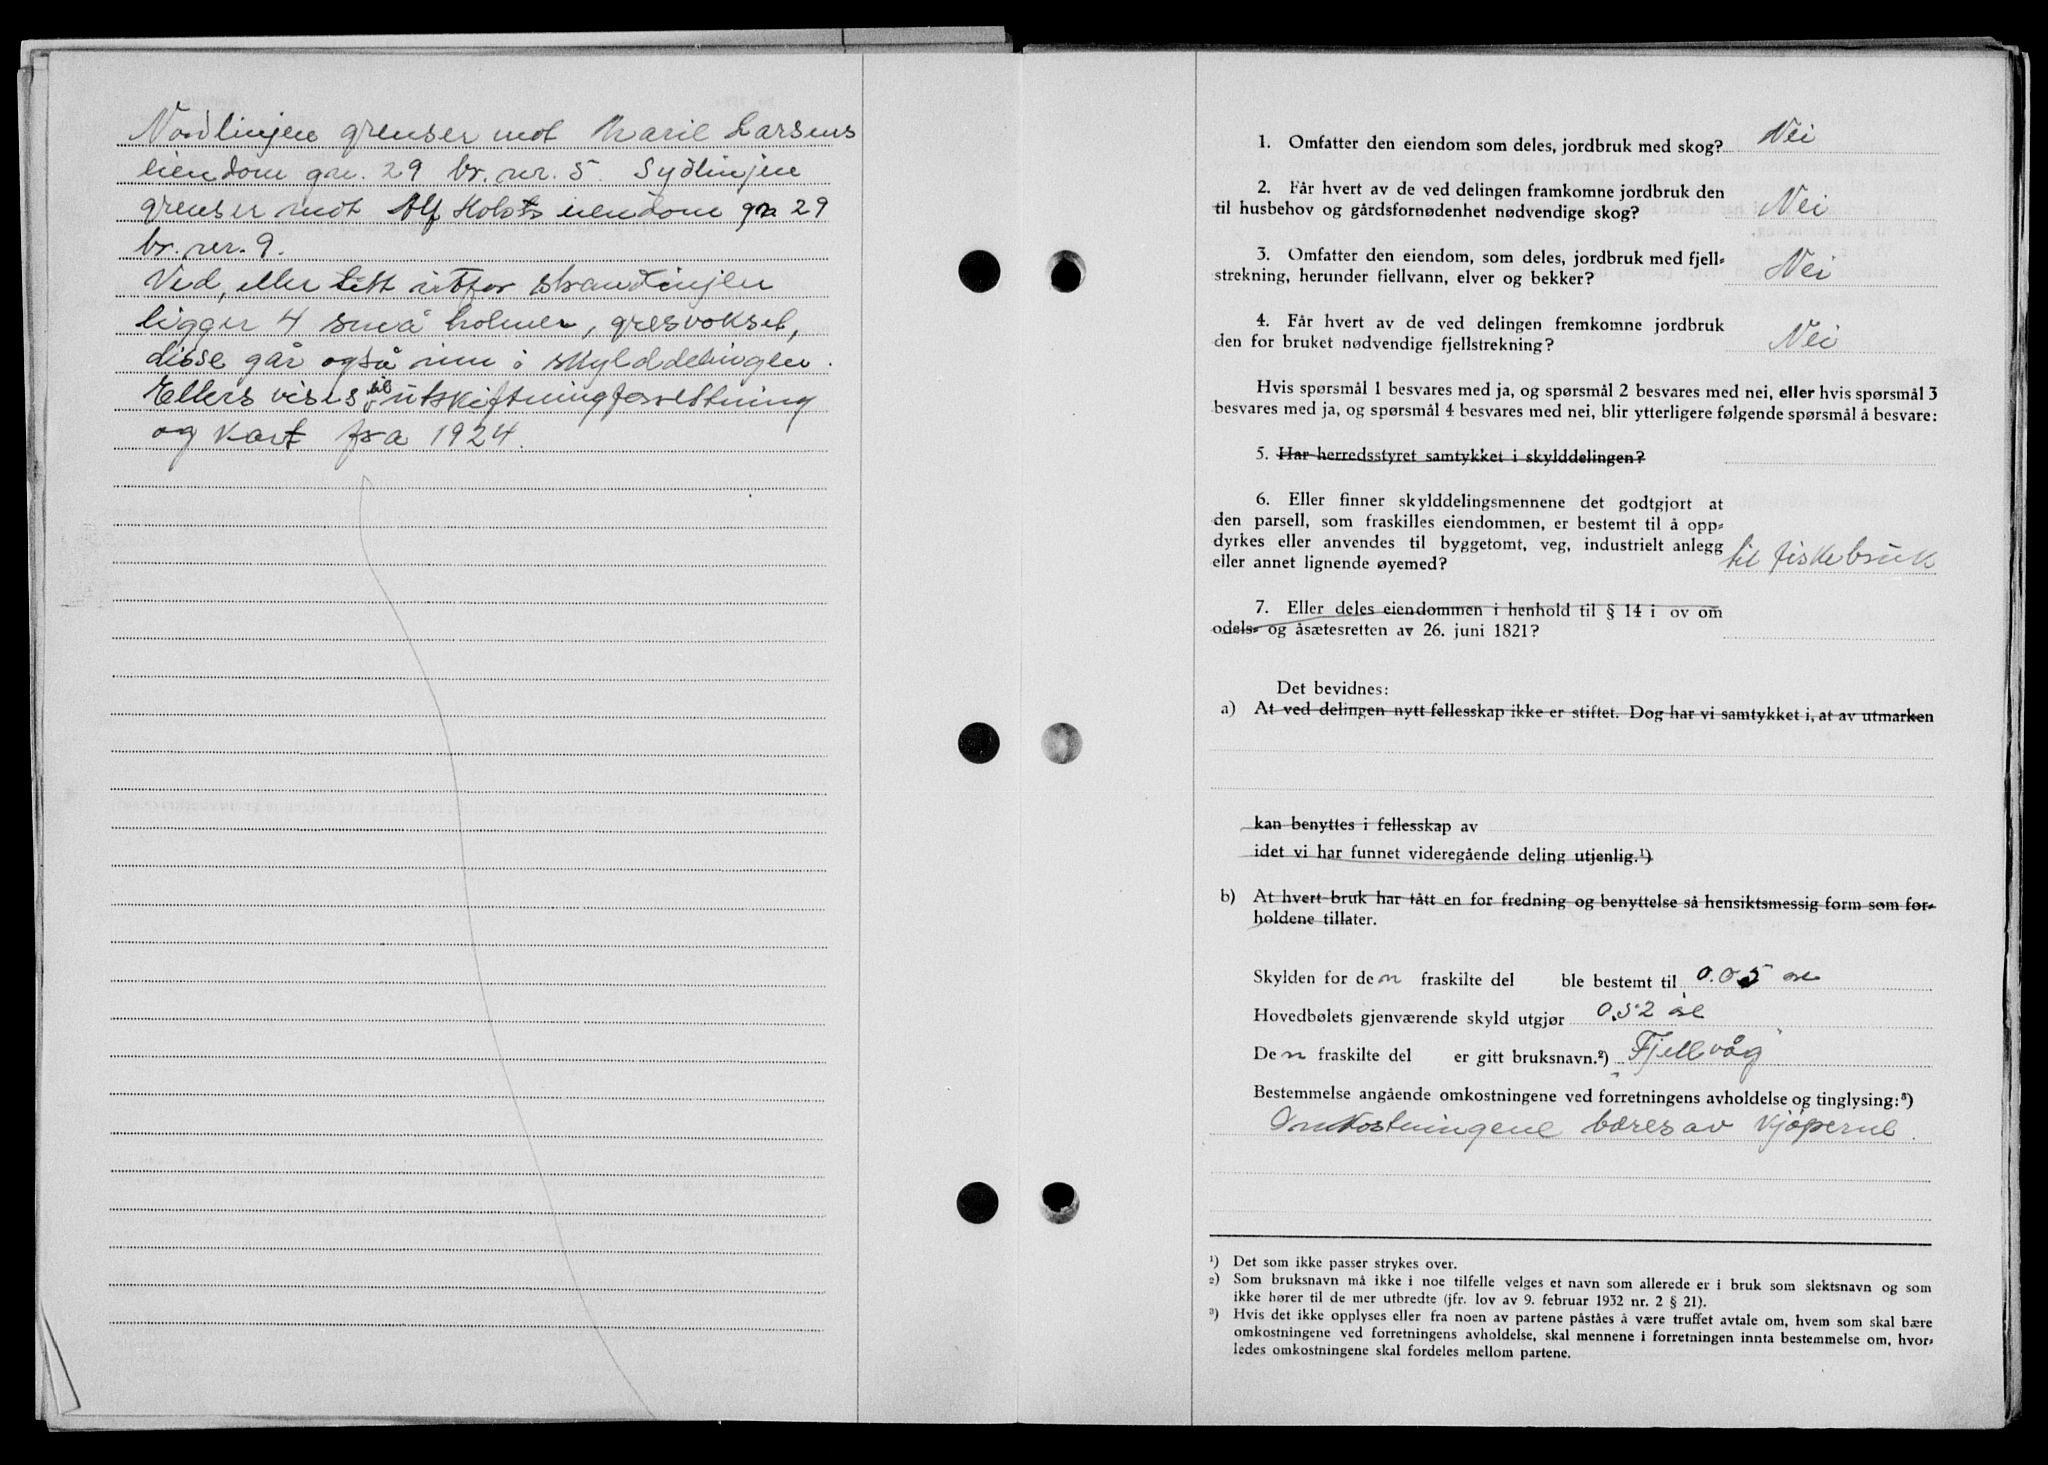 Nordlinjen grenser mot Marie Larsens
eiendom gn. 29 br. nr. 5. Sydlinjen
grenser mot Alf Holsts eiendom gn 29
br. nr. 9.
Ved, eller tett utfor strandlinjen
ligger 4 små holmer, gresvokset,
disse går også inn i skylddelingen.
Ellers vises til utskiftningforretning
og kart fra 1924.
1. Omfatter den eiendom som deles, jordbruk med skog? Nei
2. Får hvert av de ved delingen framkomne jordbruk den
til husbehov og gårdsfornødenhet nødvendige skog? Nei
3. Omfatter den eiendom, som deles, jordbruk med fjell-
strekning, herunder fiellvann, elver og bekker? Nei
4. Får hvert av de ved delingen fremkomne jordbruk
den for bruket nødvendige fjellstrekning? Nei
Hvis spørsmål 1 besvares med ja, og spørsmål 2 besvares med nei, eller hvis spørsmål 3
besvares med ja, og spørsmål 4 besvares med nei, blir ytterligere følgende spørsmål å besvare:
5. Har herredsstyret samtykket i skylddelingen?
6. Eller finner skylddelingsmennene det godtgjort at
den parsell, som fraskilles eiendommen, er bestemt til å opp-
dyrkes eller anvendes til byggetomt, veg, industrielt anlegg
eller annet lignende øyemed? til fiskebruk
7. Eller deles eiendommen i henhold til § 14 i ov om
odels- og åsætesretten av 26. juni 1821?
Det bevidnes:
a) At ved delingen nytt fellesskap ikke er stiftet. Dog har vi samtykket i, at av utmarken
kan benyttes i fellesskap av
idet vi har funnet videregående deling utjenlig.¹)
b) At hvert bruk har fått en for fredning og benyttelse så hensiktsmessig form som for-
holdene tillater.
Skylden for den fraskilte del ble bestemt til 0.05 øre
Hovedbølets gjenværende skyld utgjør 0.52 øre
Den fraskilte del er gitt bruksnavn.²) Fjellvåg
Bestemmelse angående omkostningene ved forretningens avholdelse og tinglysing:³)
Omkostningene bæres av kjøperne.
¹) Det som ikke passer strykes over.
²) Som bruksnavn må ikke i noe tilfelle velges et navn som allerede er i bruk som slektsnavn og som
ikke hører til de mer utbredte (jfr. lov av 9. februar 1932 nr. 2 § 21).
³) Hvis det ikke opplyses eller fra noen av partene påståes å være truffet avtale om, hvem som skal bære
omkostningene ved forretningens avholdelse, skal mennene i forretningen innta bestemmelse om, hvor-
ledes omkostningene skal fordeles mellom partene.